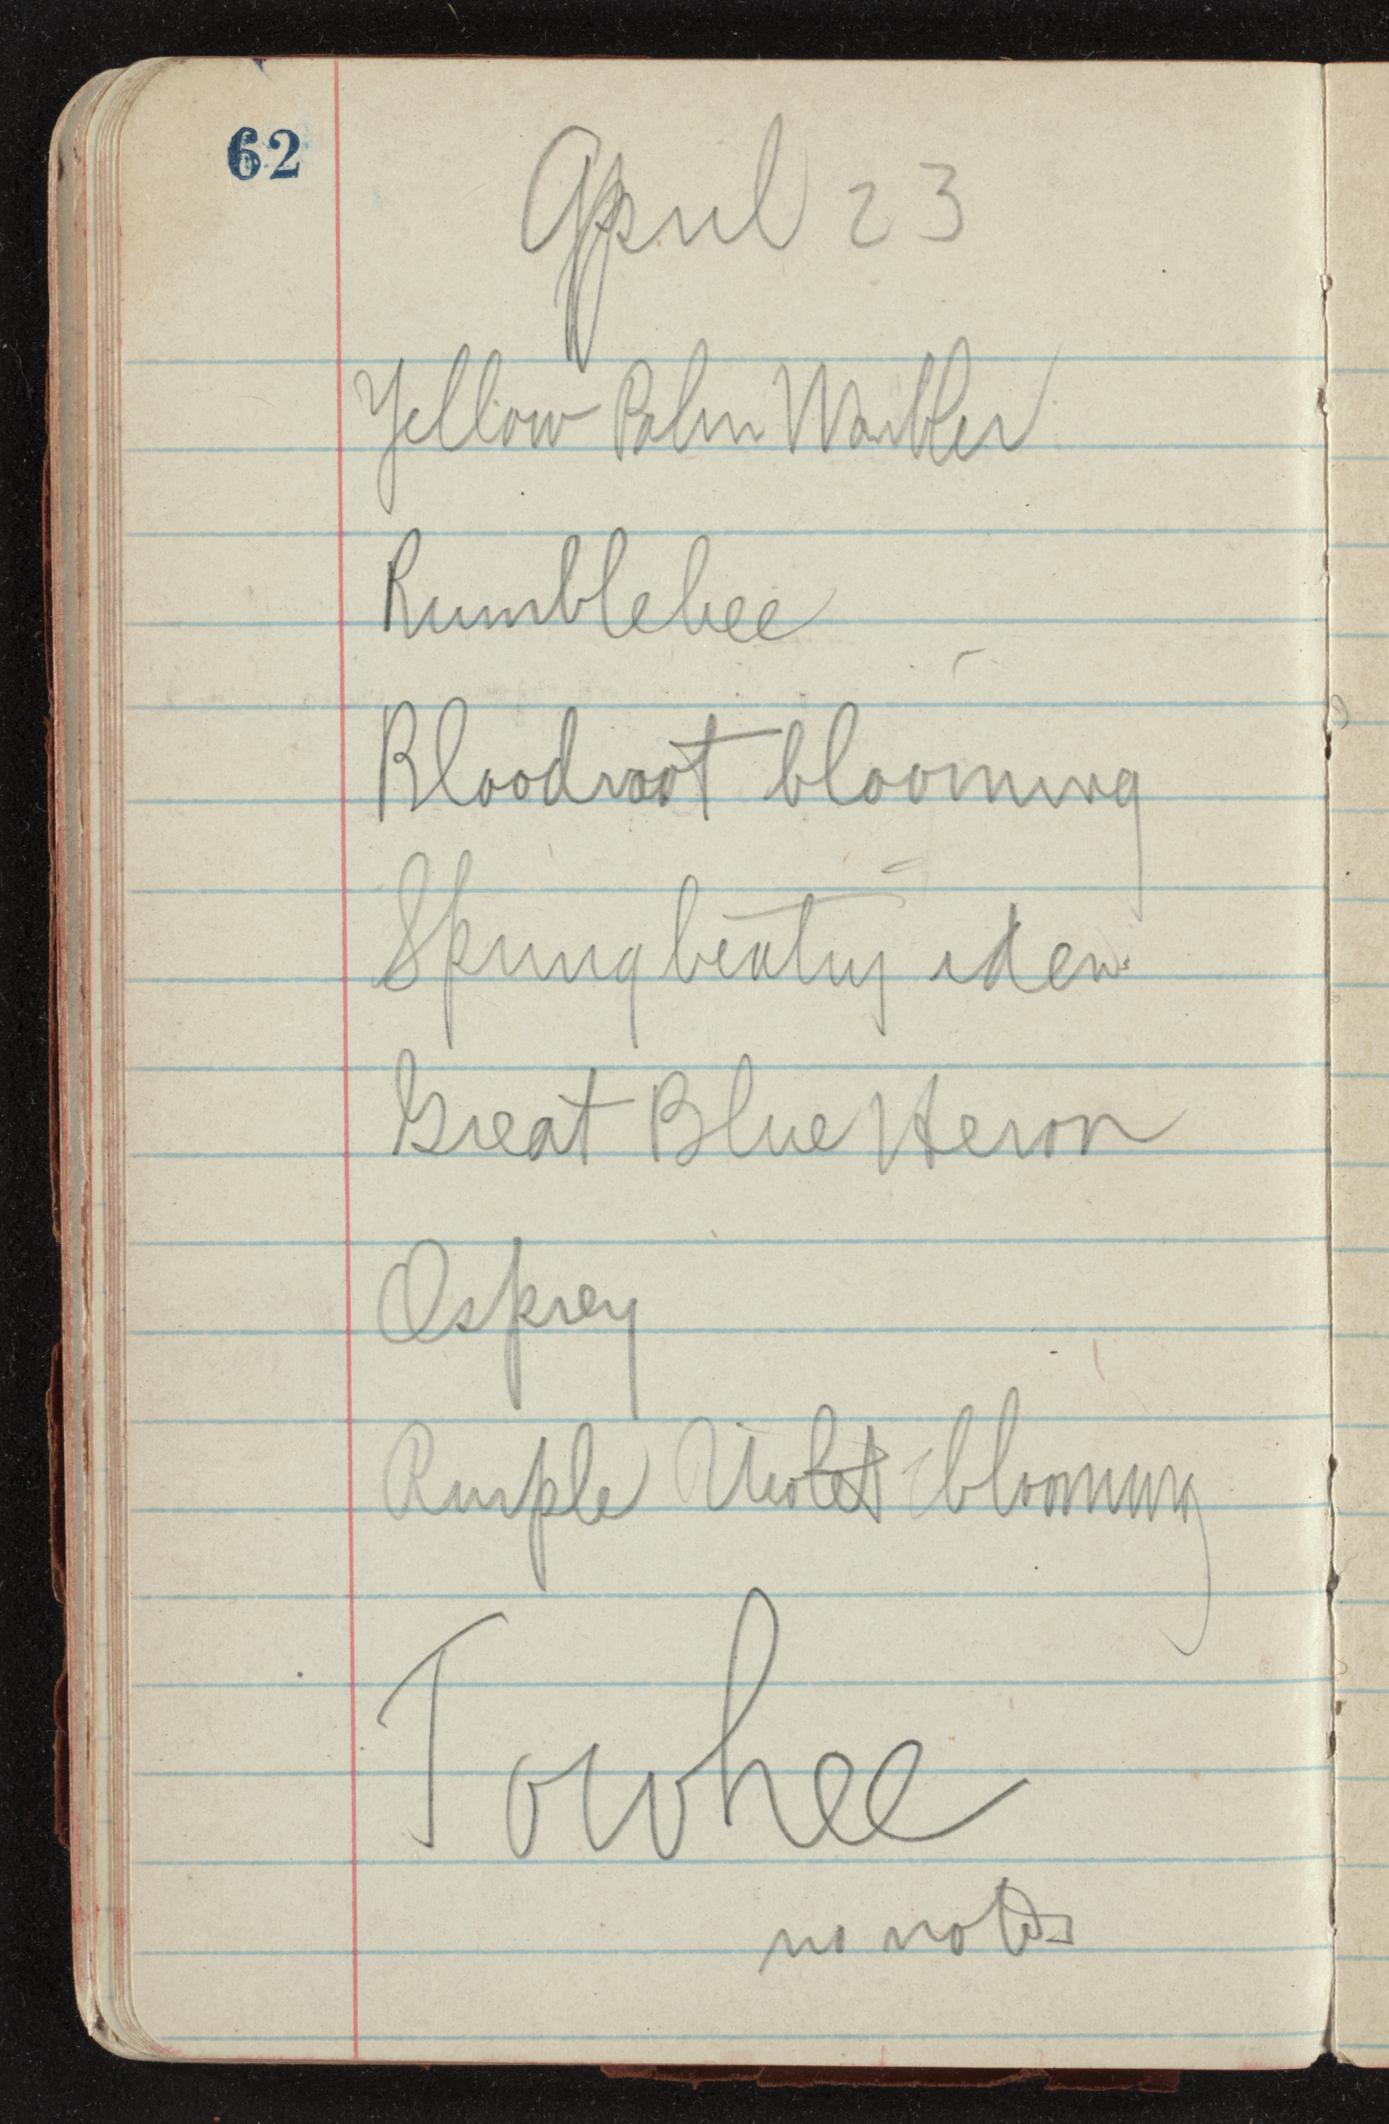 62
April 23
Yellow Palm Warbler
Bumblebee
Bloodroot blooming
Spring beauty
Great Blue Heron
Osprey
Purple Violet blooming
Towhee
no notes